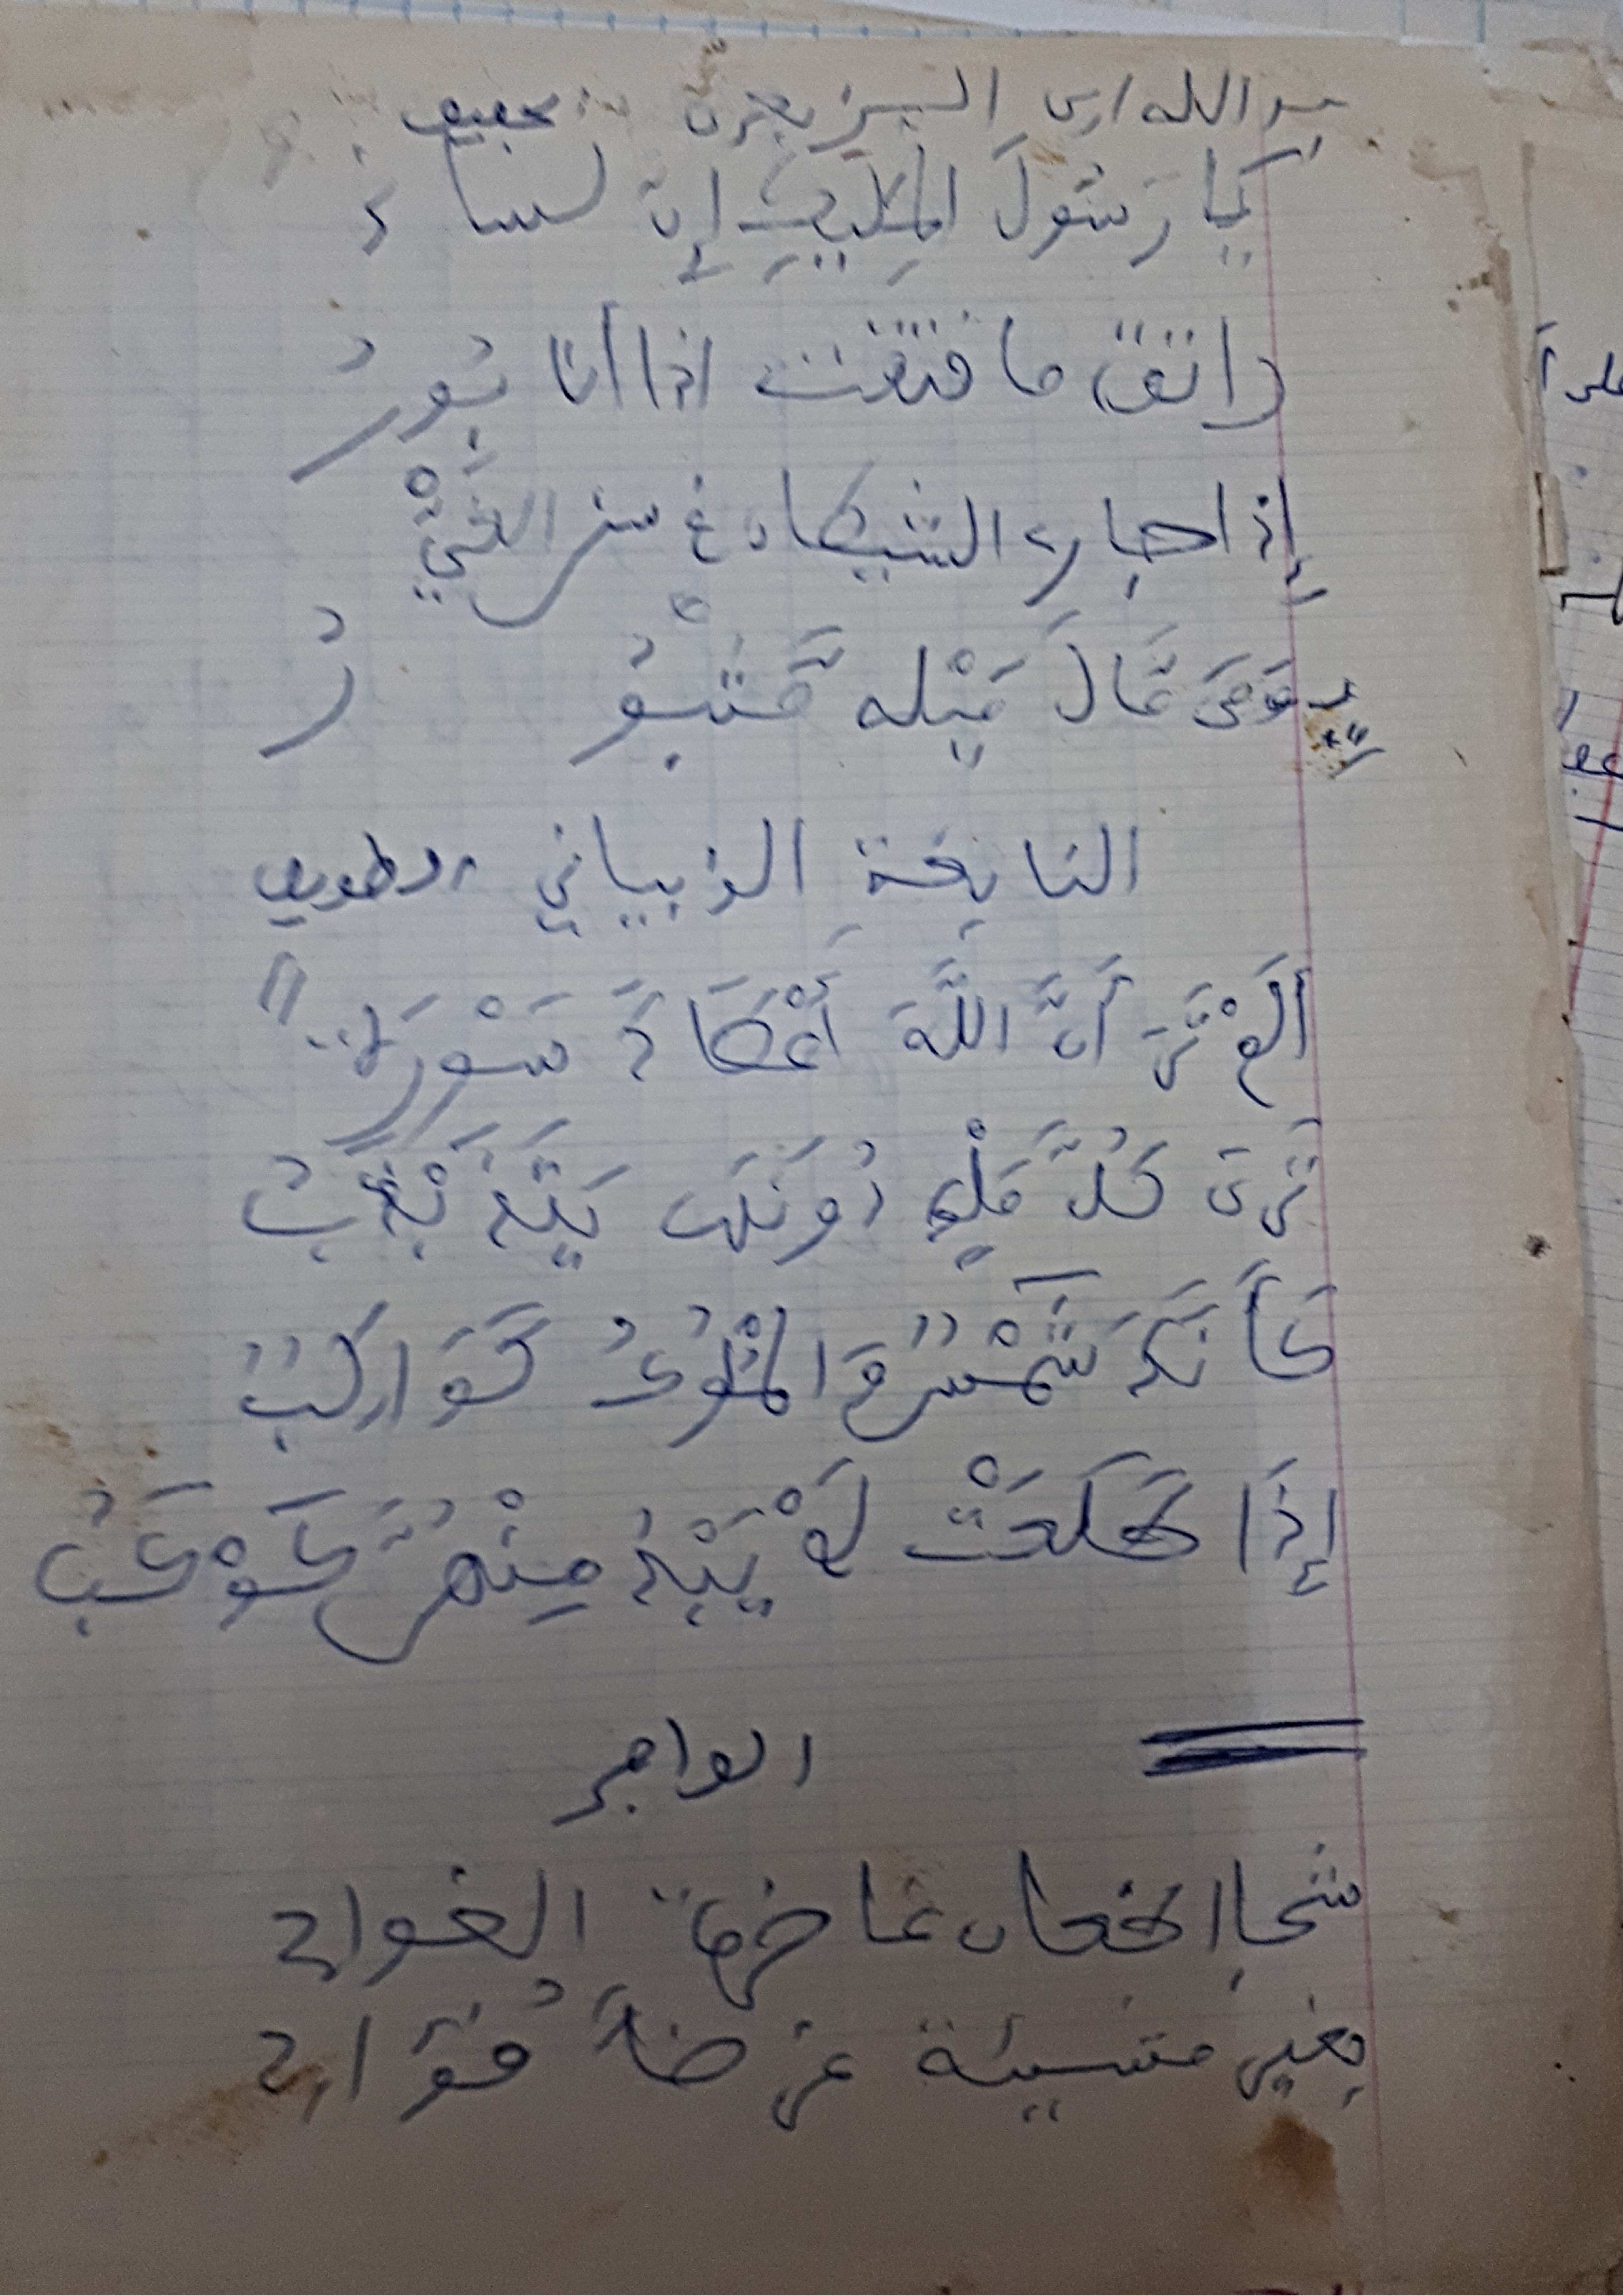 عبد الله ابن الزبعرى خفيف
يَا رَسُولَ المَلِيكِ إِنَّ لسانِي
راتق ما فتقت إذ أنا بُورُ
إذا جاري الشيطان في سنن الغَيِّ
وَمَنْ مَالَ مَيْله مَثْبُو رُ
النابغة الذبياني الطويل
أَلَمْ تَرَ أَنَّ اللَّهَ أَعْطَاكَ سَوْرَةً
تَرَى كُلَّ مَلْكٍ دُونَهَا يَتَذَبْذَبُ
كَأَنَّكَ شَمْسٌ وَالمُلُوكُ كَوَاكِبٌ
إِذَا طَلَعَتْ لَمْ يَبْدُ مِنْهُنَّ كَوْكَبُ
الوافر
بغير مشيئة عرضاً فؤادي
على